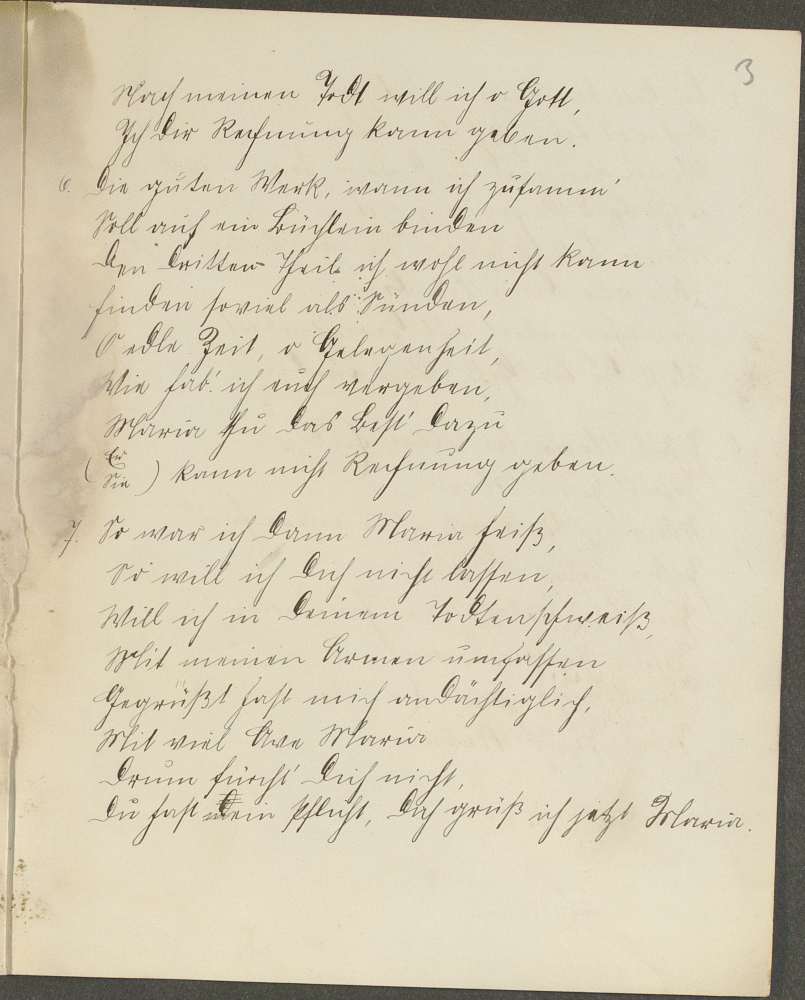 3
Nach meinen Todt will ich o Gott,
Ich dir Rechnung kann geben.
6. Die guten Werk, wann ich zusamm'
Soll auf ein Büchlein binden
Den dritten Theil ich wohl nicht kann
finden soviel als Sünden,
O edle Zeit, o Gelegenheit,
Wie hab' ich euch vergeben,
Maria thu das Best' dazu
(Er
Sie) kann nicht Rechnung geben.
7. So war ich dann Maria heiß,
So will ich dich nicht lassen,
Will ich in deinem Todtenschweiß,
Mit meinen Armen umfassen
Gegrüßt hast mich andächtiglich,
Mit viel Ave Maria
Drum fürcht' dich nicht,
Du hast dein Pflicht, dich grüß ich jetzt Maria.